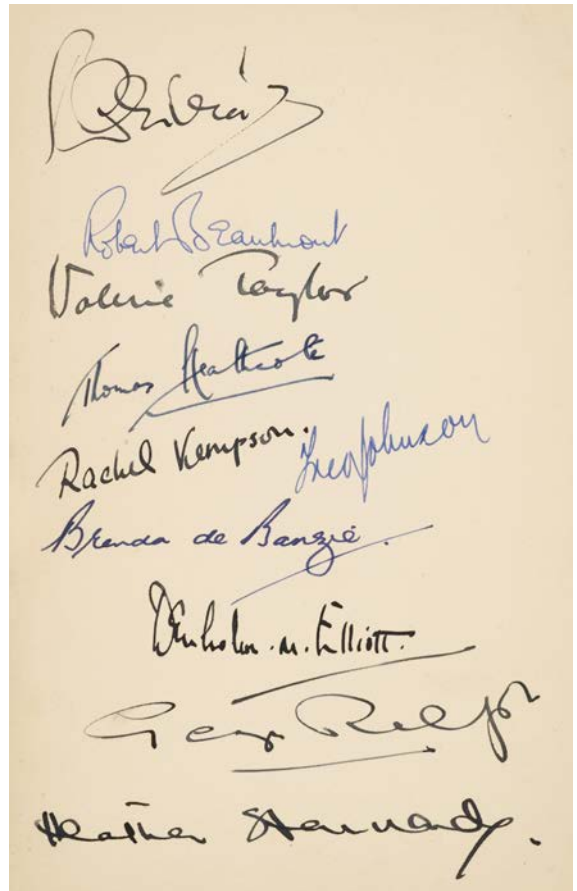 Robert Beaumont
Valerie Taylor
Thomas Heathcote
Rachel Kempson.
Fred Johnson
Brenda de Banzie.
Denholm. M. Elliott.
George Relph
Heather Stannard.